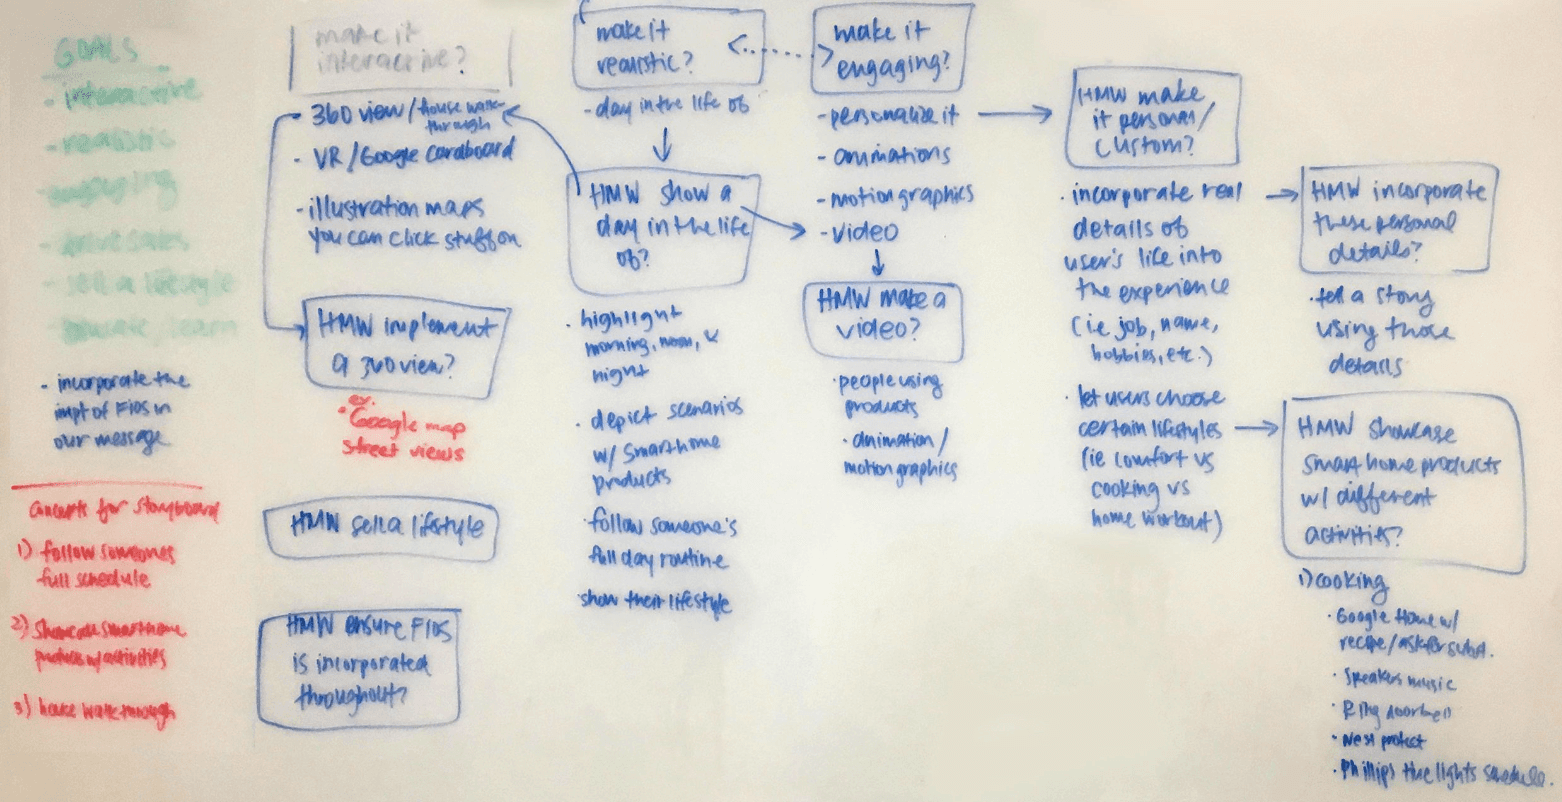 GOALS
- interactive
- realistic
- engaging
- drive sales
- sell a lifestyle
- educate/learn
- incorporate the
impt of Fios in
our message
concepts for storyboard
1) follow someones
full schedule
2) Showcase smarthome
products w/ activities
3) house walkthrough
make it
interactive?
- 360 view/house walk-
through
- VR/Google cardboard
- illustration maps
you can click stuff on
HMW implement
a 360 view?
• ex.
Google map
street views
HMW sell a lifestyle
HMW ensure Fios
is incorporated
throughout?
make it
realistic?
- day in the life of
HMW show a
day in the life
of?
• highlight
morning, noon, &
night
• depict scenarios
w/ Smarthome
products
• follow someone's
full day routine
• show their lifestyle
make it
engaging?
- personalize it
- animations
- motion graphics
- video
HMW make a
video?
• people using
products
• animation/
motion graphics
HMW make
it personal/
custom?
• incorporate real
details of
user's life into
the experience
(ie job, name,
hobbies, etc.)
• let users choose
certain lifestyles
(ie comfort vs
cooking vs
home workout)
HMW incorporate
these personal
details?
• tell a story
using those
details
HMW showcase
smart home products
w/ different
activities?
1) cooking
• Google Home w/
recipe/ask for subst.
• Speakers music
• Ring doorbell
• Nest protect
• Phillips Hue lights schedule.